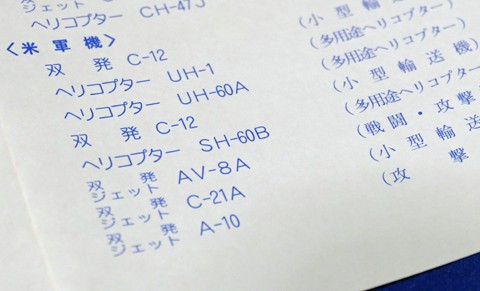 ジェット
ヘリコプター CH-47J
〈米軍機〉
双発 C-12 (小型輸送機)
ヘリコプター UH-1 (多用途ヘリコプター)
ヘリコプター UH-60A (多用途ヘリコプター)
双発 C-12 (小型輸送機)
ヘリコプター SH-60B (多用途ヘリコプター
双発ジェット AV-8A (戦闘・攻撃
双発ジェット C-21A (小型輸送
双発ジェット A-10 (攻撃